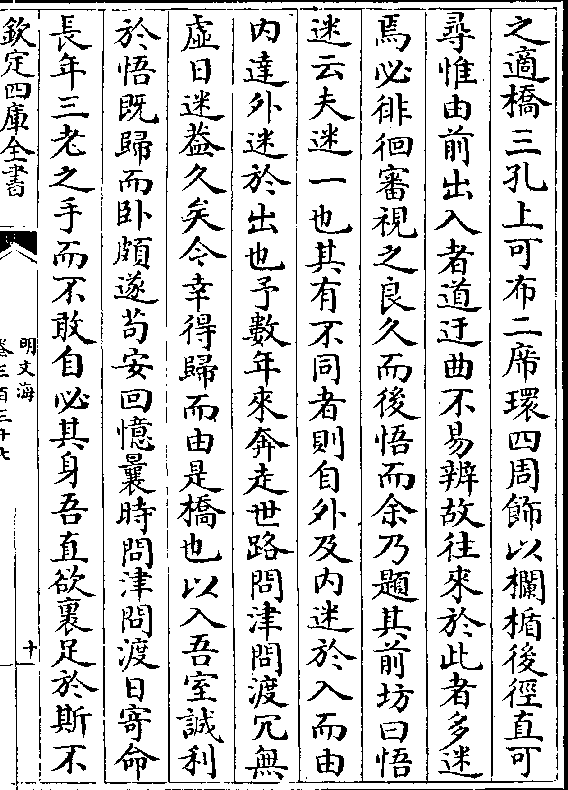 之適橋三孔上可布二席環四周飾以欄楯後徑直可
尋惟由前出入者道迂曲不易辨故往來於此者多迷
焉必徘徊審視之良久而後悟而余乃題其前坊曰悟
迷云夫迷一也其有不同者則自外及内迷於入而由
内達外迷於出也予數年來奔走世路問津問渡冗無
虛日迷益久矣今幸得歸而由是橋也以入吾室誠利
於悟既歸而卧頗遂苟安回憶曩時問津問渡日寄命
長年三老之手而不敢自必其身吾直欲裏足於斯不
欽定四庫全書
明文海
卷三百三十七
十